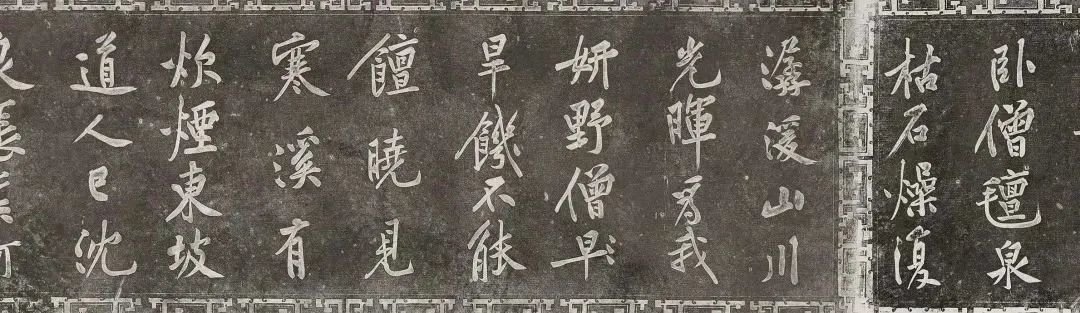 卧僧氊泉
枯石燥復
潺湲山川
光暉為我
妍野僧早
旱饑不能
饘曉見
寒溪有
炊煙東坡
道人已沈